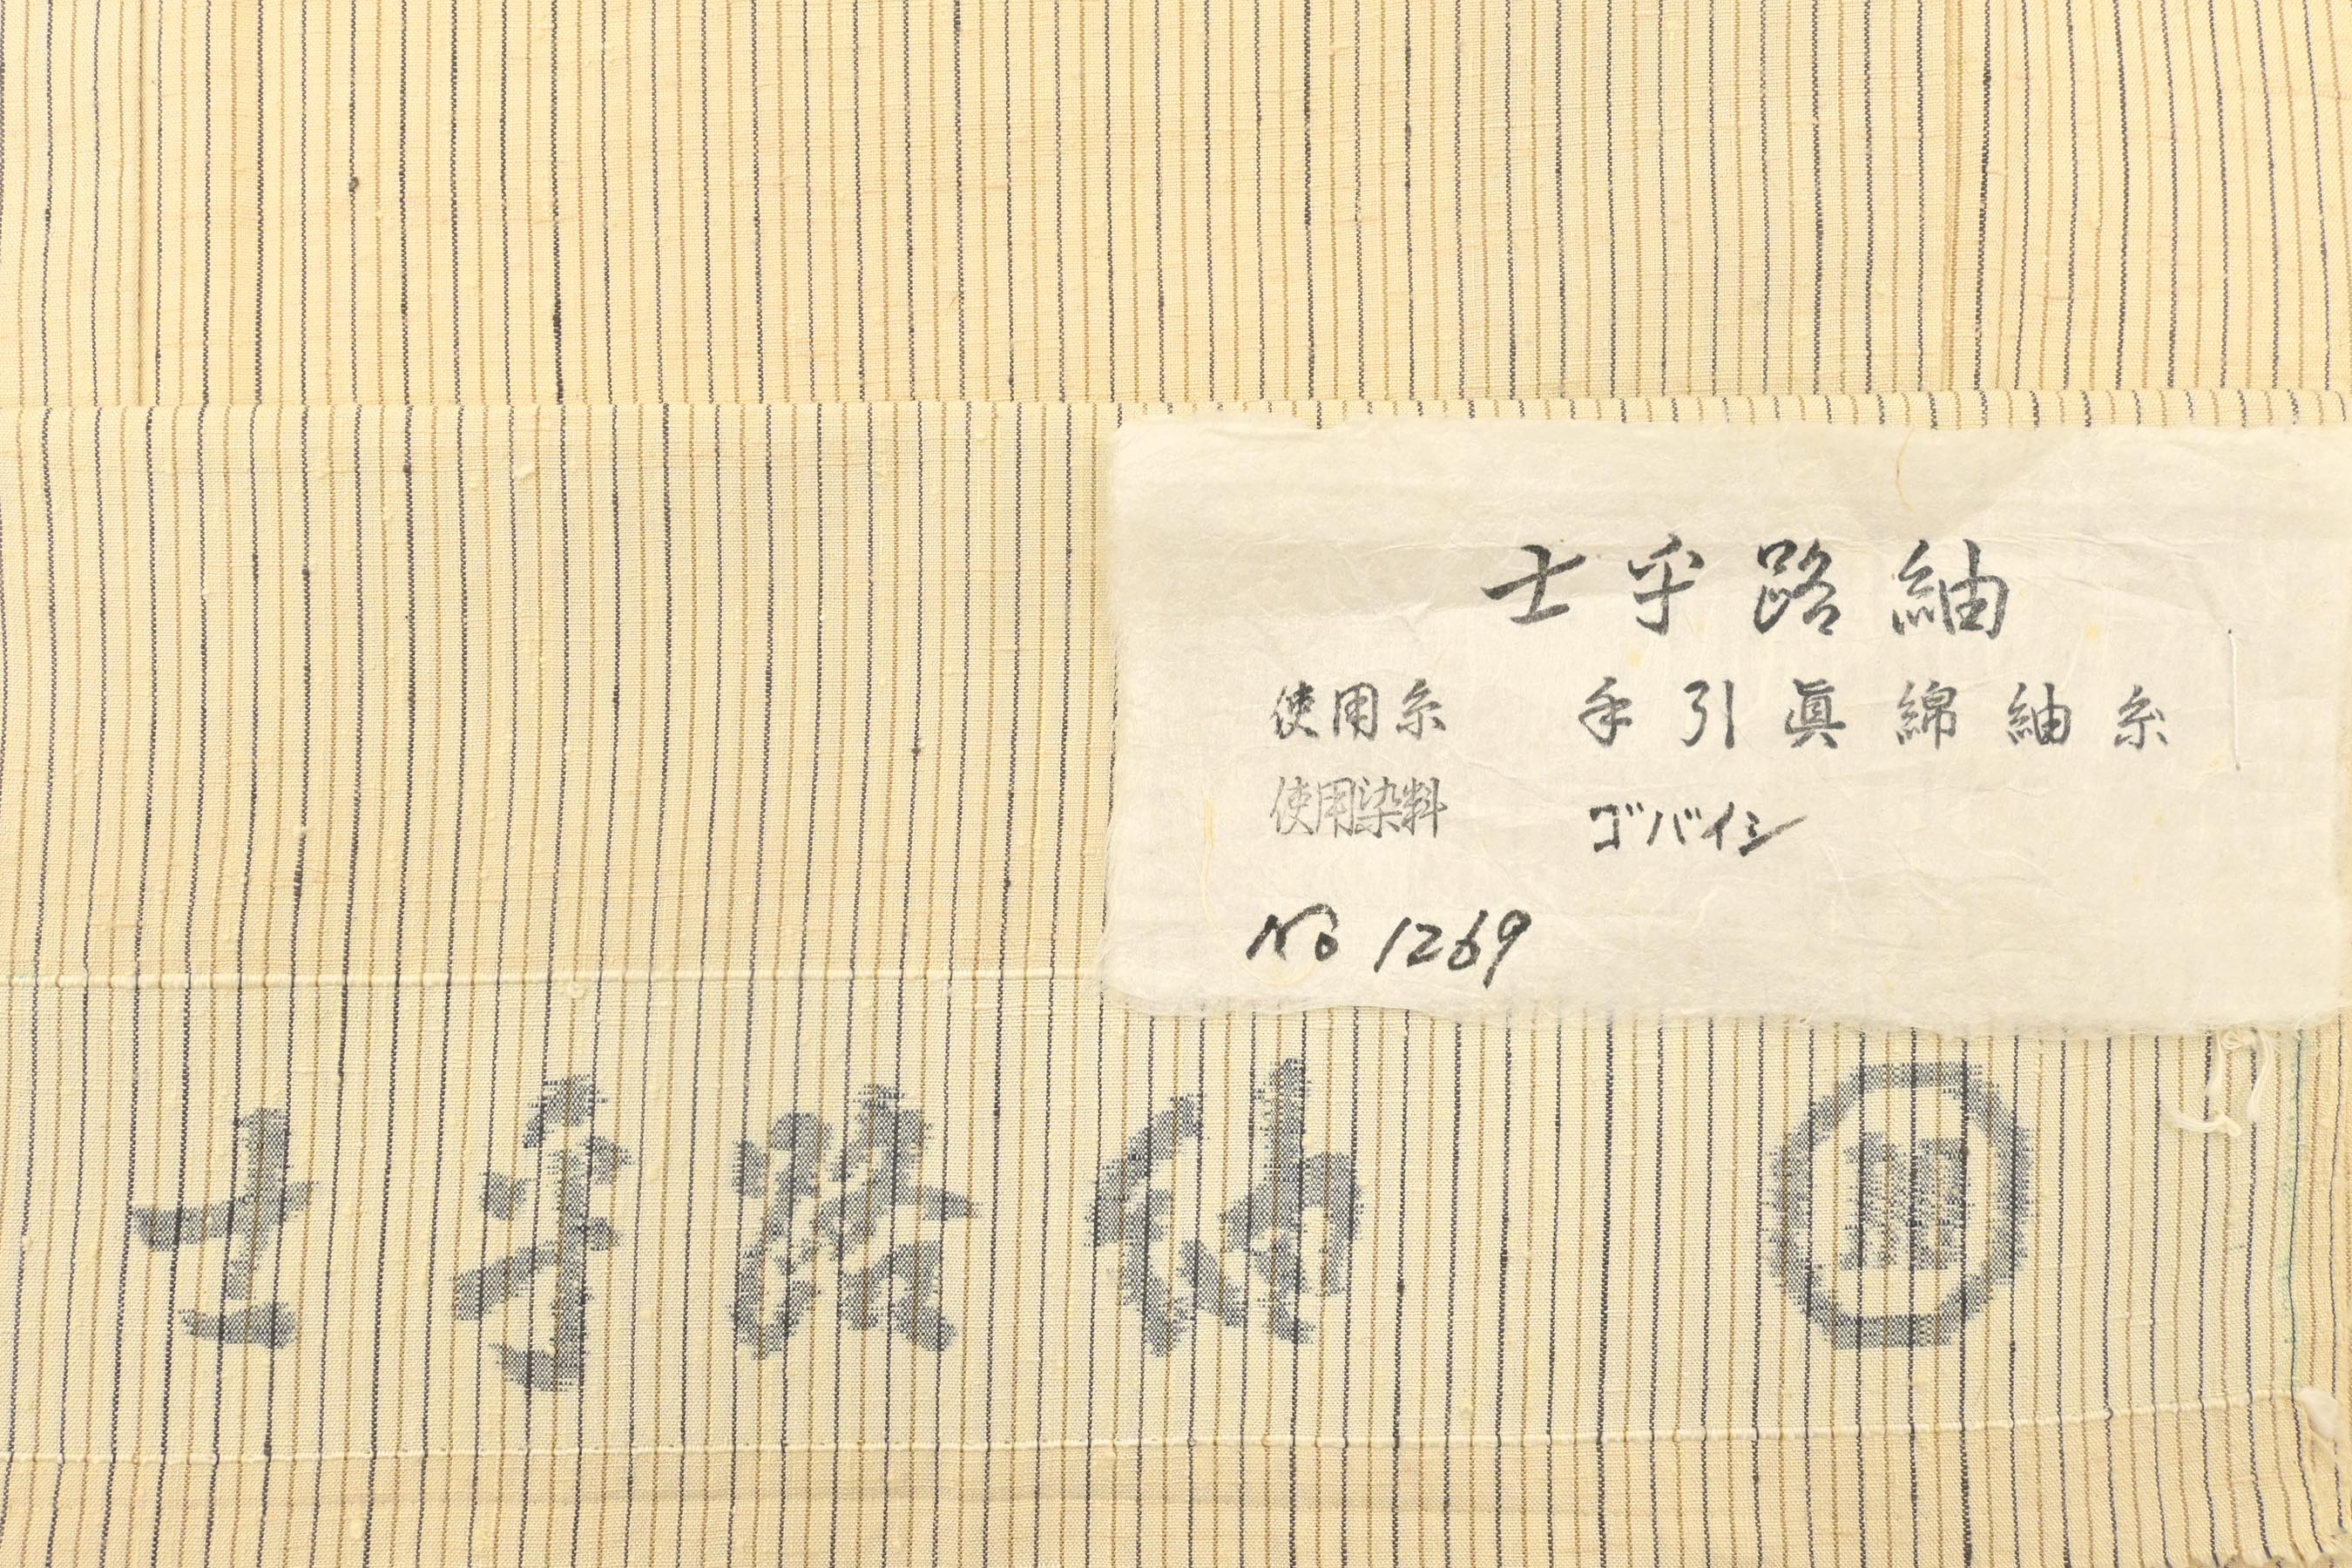 士乎路紬
使用糸 手引眞綿紬糸
使用染料 ゴバイシ
No 1269
士乎路紬